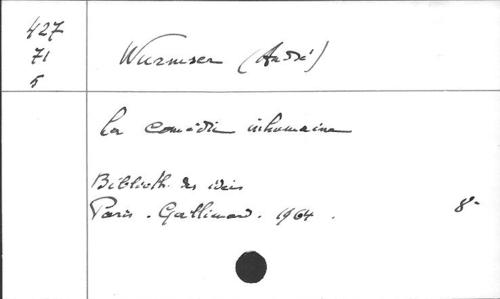 427
71
5
Wurmser (André)
La comédie inhumaine
Biblioth. des idées
Paris. Gallimard. 1964.
8°